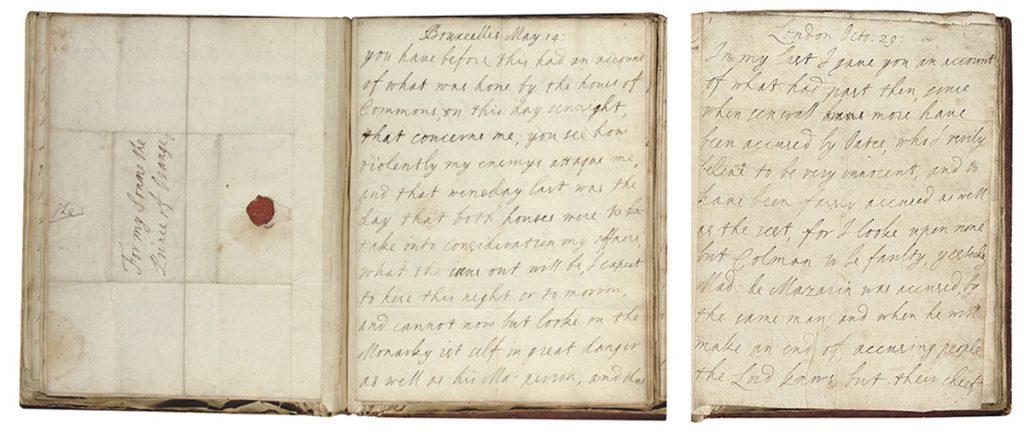 For my Sonne the
Prince of Orange,
Bruxelles May 14:
you have before this had an account
of what was done by the house of
Commons, on this day senight,
that concerns me, you see how
violently my enemys attaque me,
and that wensday last was the
day that both houses were to be
take into consideration my affaire,
what the out will be, I expect
to here this night or to morrow,
and cannot now but looke on the
Monarky itt self in great danger
as well as his Ma: person, and that
London Octo: 29:
In my last I gave you an account
of what had past then, since
when severall have more have
been accused by Oates, who I verily
beleve to be very innocent, and to
have been falsly accused as well
as the rest, for I looke upon none
but Colman to be faulty, yesterday
Mad: de Mazarin was accused, by
the same man, and when he will
make an end of accusing people
the Lord knows, but their cheef